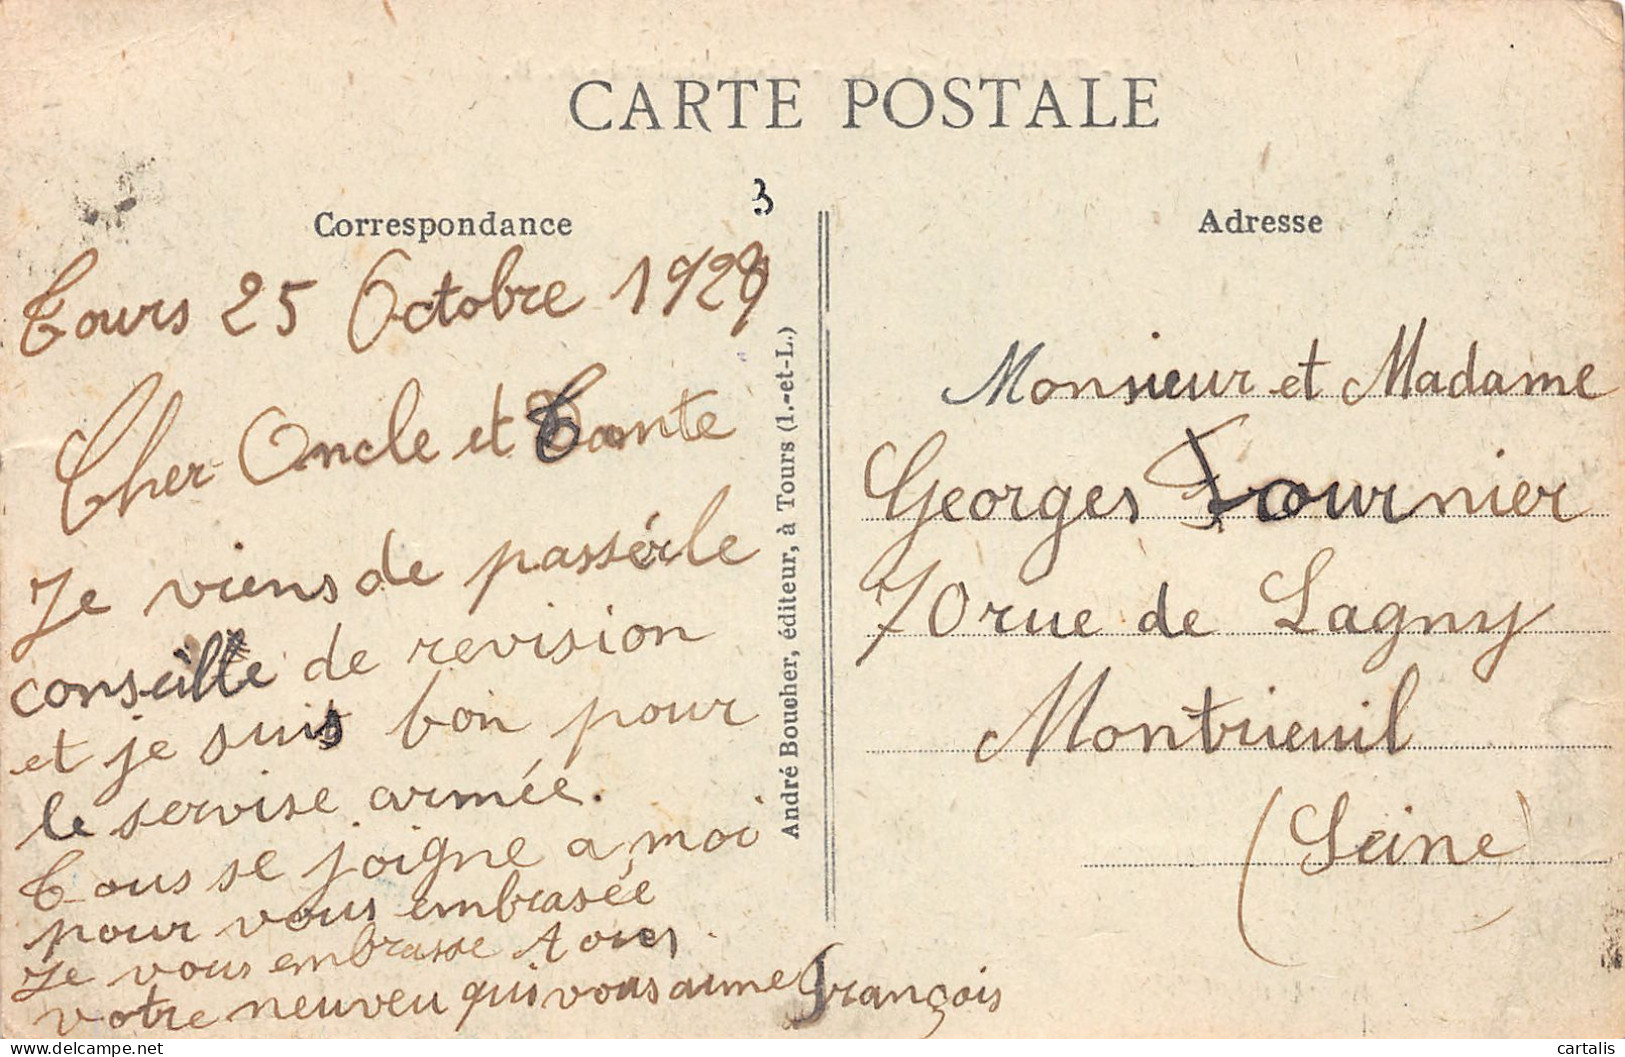 CARTE POSTALE
3
Correspondance
Tours 25 Octobre 1929
Cher Oncle et Tante
Je viens de passér le
conseille de revision
et je suis bon pour
le servise armée.
Tous se joigne a moi
pour vous embrasée
Je vous embrasse tous
votre neuveu qui vous aime François
André Boucher, éditeur, à Tours (I.-et-L.)
Adresse
Monsieur et Madame
Georges Fournier
70 rue de Lagny
Montrieuil
(Seine)
cartalis